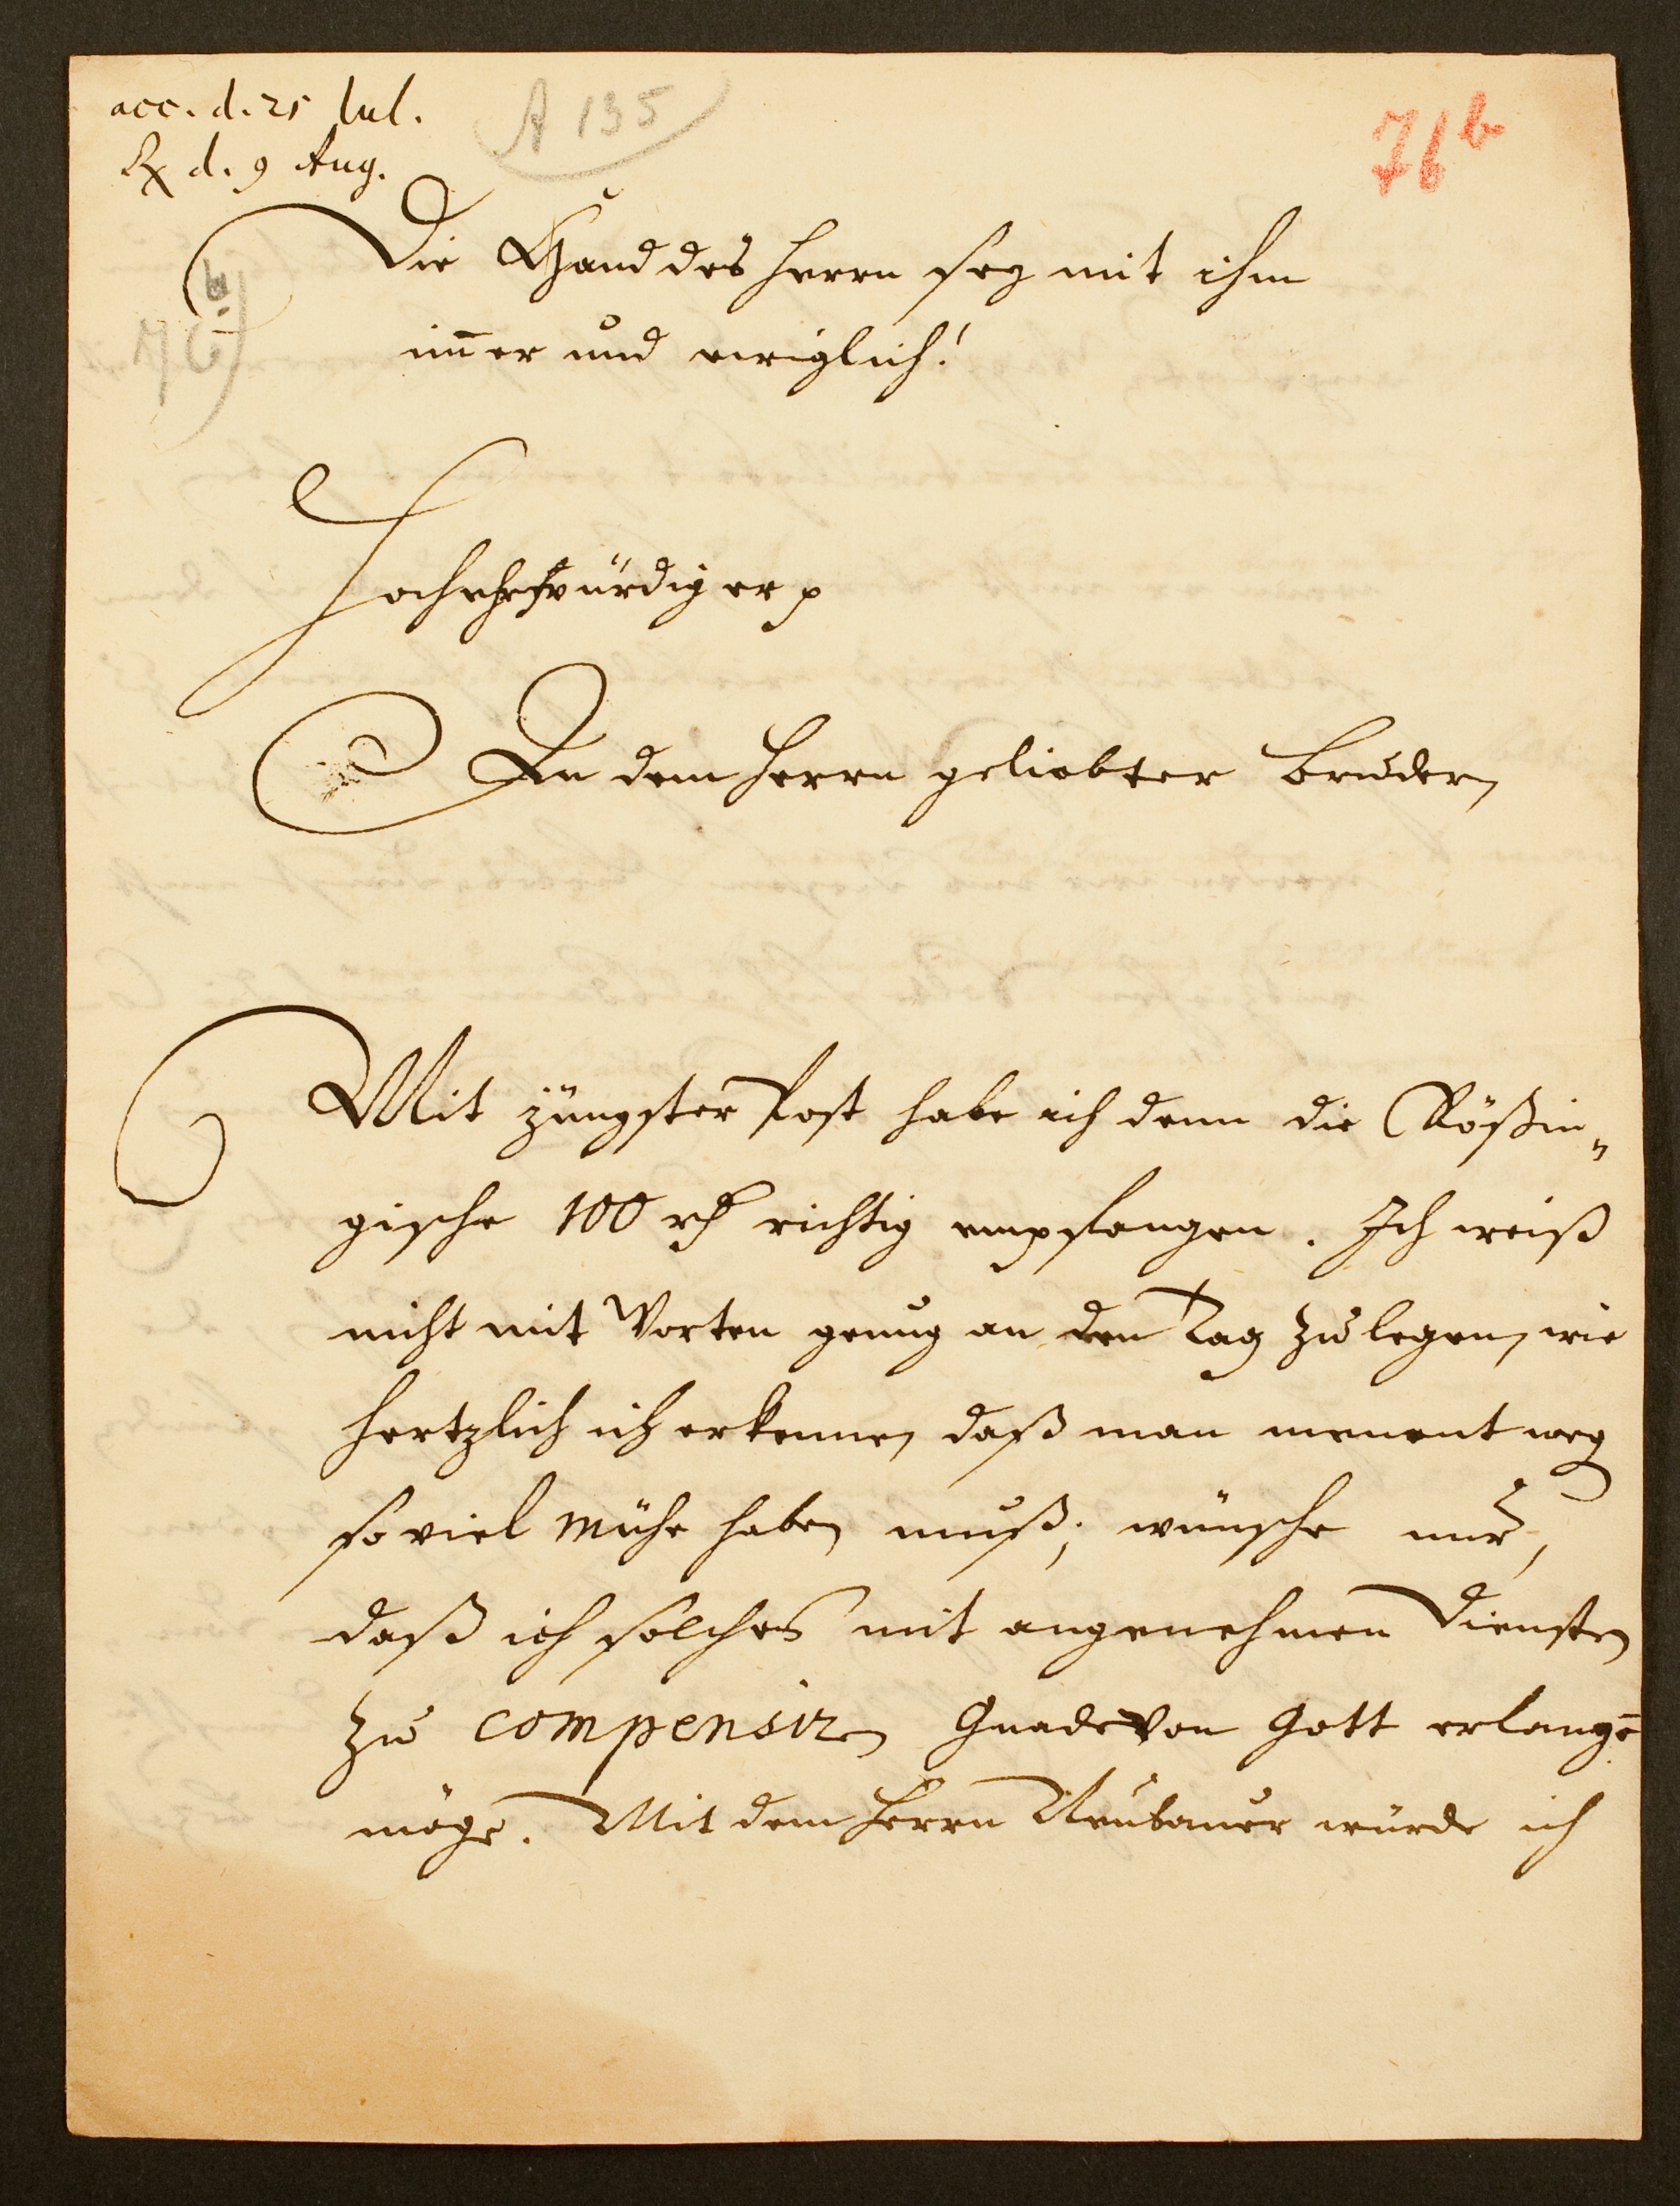 acc. d. 21 Jul.
A 135
76b
Rx d. 9 Aug.
Die Hand des Herrn sey mit ihm
76b
im̄er und ewiglich!
Hochehrwürdiger p
In dem Herrn geliebter Bruder,
Mit jüngster Post habe ich denn die Rößin„
gische 100 rh richtig empfangen. Ich weiß
nicht mit Worten genug an den Tag zu legen, wie
hertzlich ich erkenne, daß man menent weg
so viel Mühe haben muß; wünsche nur,
daß ich solches mit angenehmen Diensten
zu compensiren Gnade von Gott erlangē
möge. Mit dem Herrn Neubauer würde ich